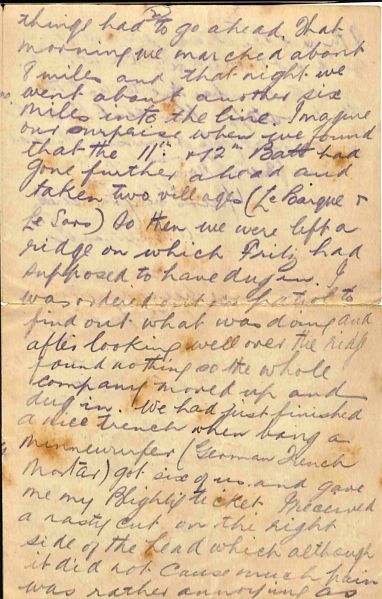 things had to go ahead. That
morning we marched about
8 miles and that night we
went about another six
miles into the line. Imagine
our surprise when we found
that the 11th & 12th Batt had
gone further ahead and
taken two villages (Le Barque &
Le Sars) So then we were left a
ridge on which Fritz had
supposed to have dug in. I
was ordered out on patrol to
find out what was doing and
after looking well over the ridge
found nothing so the whole
company moved up and
dug in. We had just finished
a nice trench when bang a
Minnewurfer (German Trench
Mortar) got six of us and gave
me my Blighty ticket. I received
a nasty cut on the right
side of the head which although
it did not cause much pain
was rather annoying as